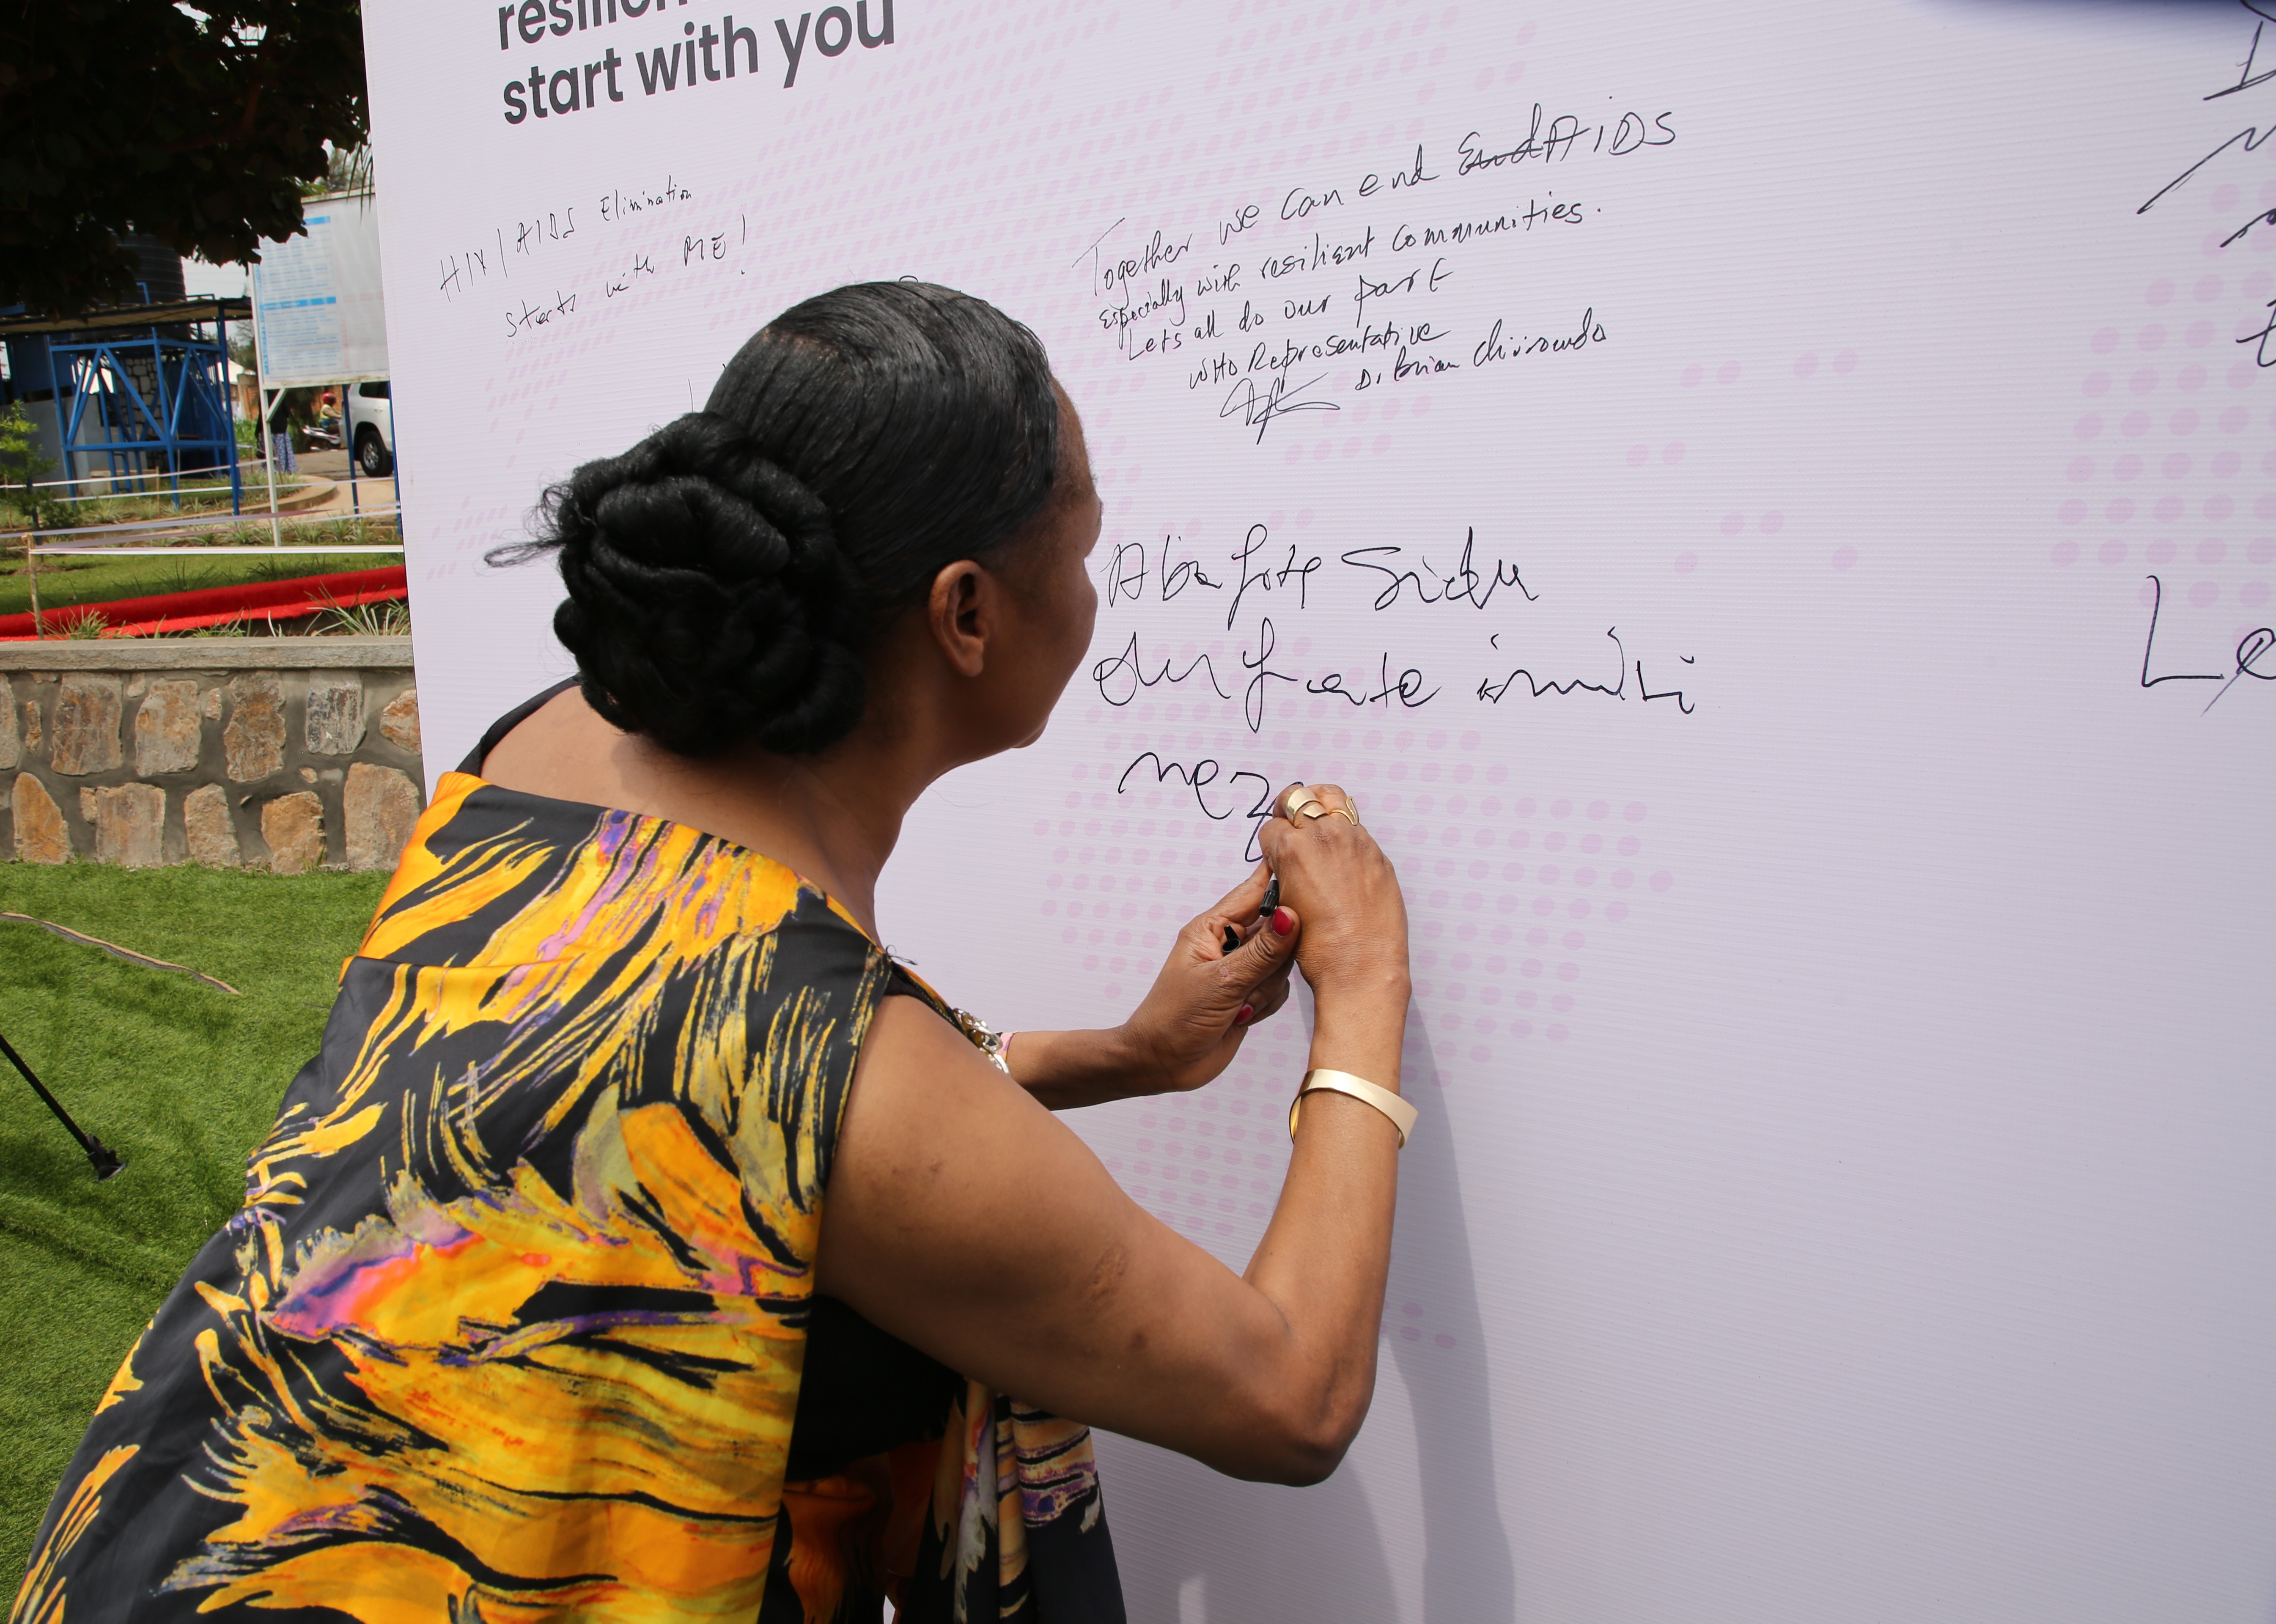 start with you
HIV/AIDS Elimination
starts with ME!
Together we can end End AIDS
especially with resilient communities.
Lets all do our part
WHO Representative
Dr Brian Chirombo
Abafite Sida
dufate imiti
nez
Le